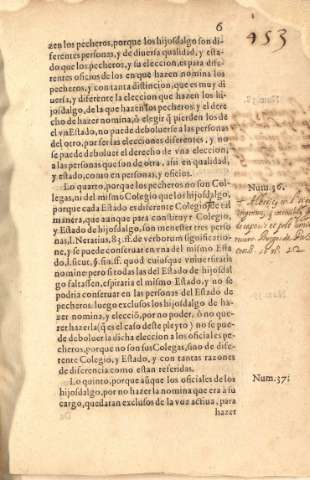 6
453
zen los pecheros, porque los hijosdalgo son di-
ferentes personas, y de diuersa qualidad, y esta-
do que los pecheros, y su eleccion, es para dife-
rentes oficios de los en que hazen nomina los
pecheros, y con tanta distincion, que es muy di
uersa, y diferente la eleccion que hazen los hi-
josdalgo, de la que hazen los pecheros; y el dere
cho de hazer nomina, ò elegir q̃ pierden los de
el vn Estado, no puede deboluerse a las personas
del otro, por ser las elecciones diferentes, y no
se puede deboluer el derecho de vna eleccion,
a las personas que son de otra, assi en qualidad,
y estado, como en personas, y oficios.
Lo quarto, porque los pecheros no son Col-
Num. 36.
legas, ni del mismo Colegio que los hijosdalgo,
porque cada Estado es diferente Colegio; de tal
manera, que aunque para constituyr Colegio,
y Estado de hijosdalgo, son menester tres perso
nas, l. Neratius, 85. ff. de verborum significatio-
ne, y se puede conseruar en vna del mismo Esta
do, l. sicut, §. fin. ff. quod cuiusque vniuersitatis
nomine pero si todas las del Estado de hijosdal
go faltassen, espiraria el mismo Estado, y no se
podria conseruar en las personas del Estado de
pecheros: luego exclusos los hijosdalgo de ha-
zer nomina, y eleccion, por no poder, ò no que-
rer hazerla (q̃ es el caso deste pleyto) no se pue-
de deboluer la dicha eleccion a los oficiales pe-
cheros, porque no son sus Colegas, sino de dife-
rente Colegio, y Estado, y con tantas razones
de diferencia como estan referidas.
Lo quinto, porque aũque los oficiales de los
Num. 37.
hijosdalgo, por no hazer la nomina que era à su
cargo, quedaran exclusos de la voz actiua, para
hazer